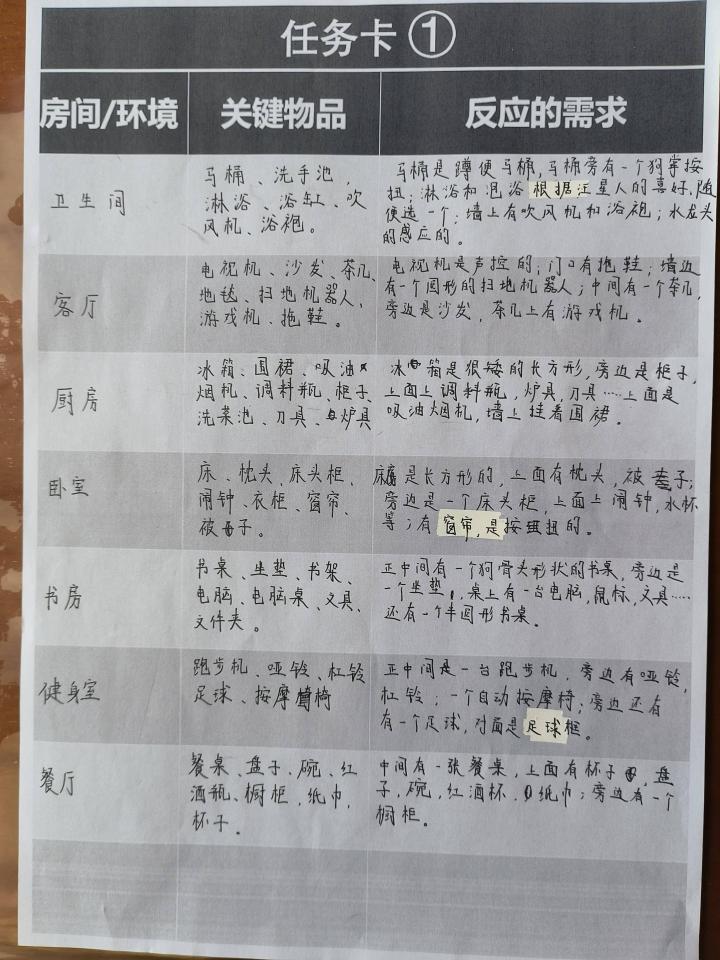 任务卡①
房间/环境 关键物品 反应的需求
卫生间
马桶、洗手池，
淋浴、浴缸、吹
风机、浴袍。
马桶是蹲便马桶，马桶旁有一个狗掌按
扭；淋浴和泡浴根据汪星人的喜好，随
便选一个；墙上有吹风机和浴袍；水龙头
的感应的。
客厅
电视机、沙发、茶几、
地毯、扫地机器人、
游戏机、拖鞋。
电视机是声控的；门口有拖鞋；墙边
有一个圆形的扫地机器人；中间有一个茶几，
旁边是沙发，茶几上有游戏机。
厨房
冰箱、围裙、吸油
烟机、调料瓶、柜子、
洗菜池、刀具、炉具
冰箱是很矮的长方形，旁边是柜子，
上面上调料瓶，炉具，刀具……上面是
吸油烟机，墙上挂着围裙。
卧室
床、枕头、床头柜、
闹钟、衣柜、窗帘、
被子。
床是长方形的，上面有枕头，被子；
旁边是一个床头柜，上面上闹钟，水杯
等；有窗帘，是按扭的。
书房
书桌、坐垫、书架、
电脑、电脑桌、文具、
文件夹。
正中间有一个狗骨头形状的书桌，旁边是
一个坐垫，桌上有一台电脑，鼠标，文具……
还有一个半圆形书桌。
健身室
跑步机、哑铃、杠铃
足球、按摩椅
正中间是一台跑步机，旁边有哑铃，
杠铃；一个自动按摩椅；旁边还有
有一个足球，对面是足球框。
餐厅
餐桌、盘子、碗、红
酒瓶、橱柜，纸巾，
杯子。
中间有一张餐桌，上面有杯子，盘
子，碗，红酒杯，纸巾；旁边有一个
橱柜。